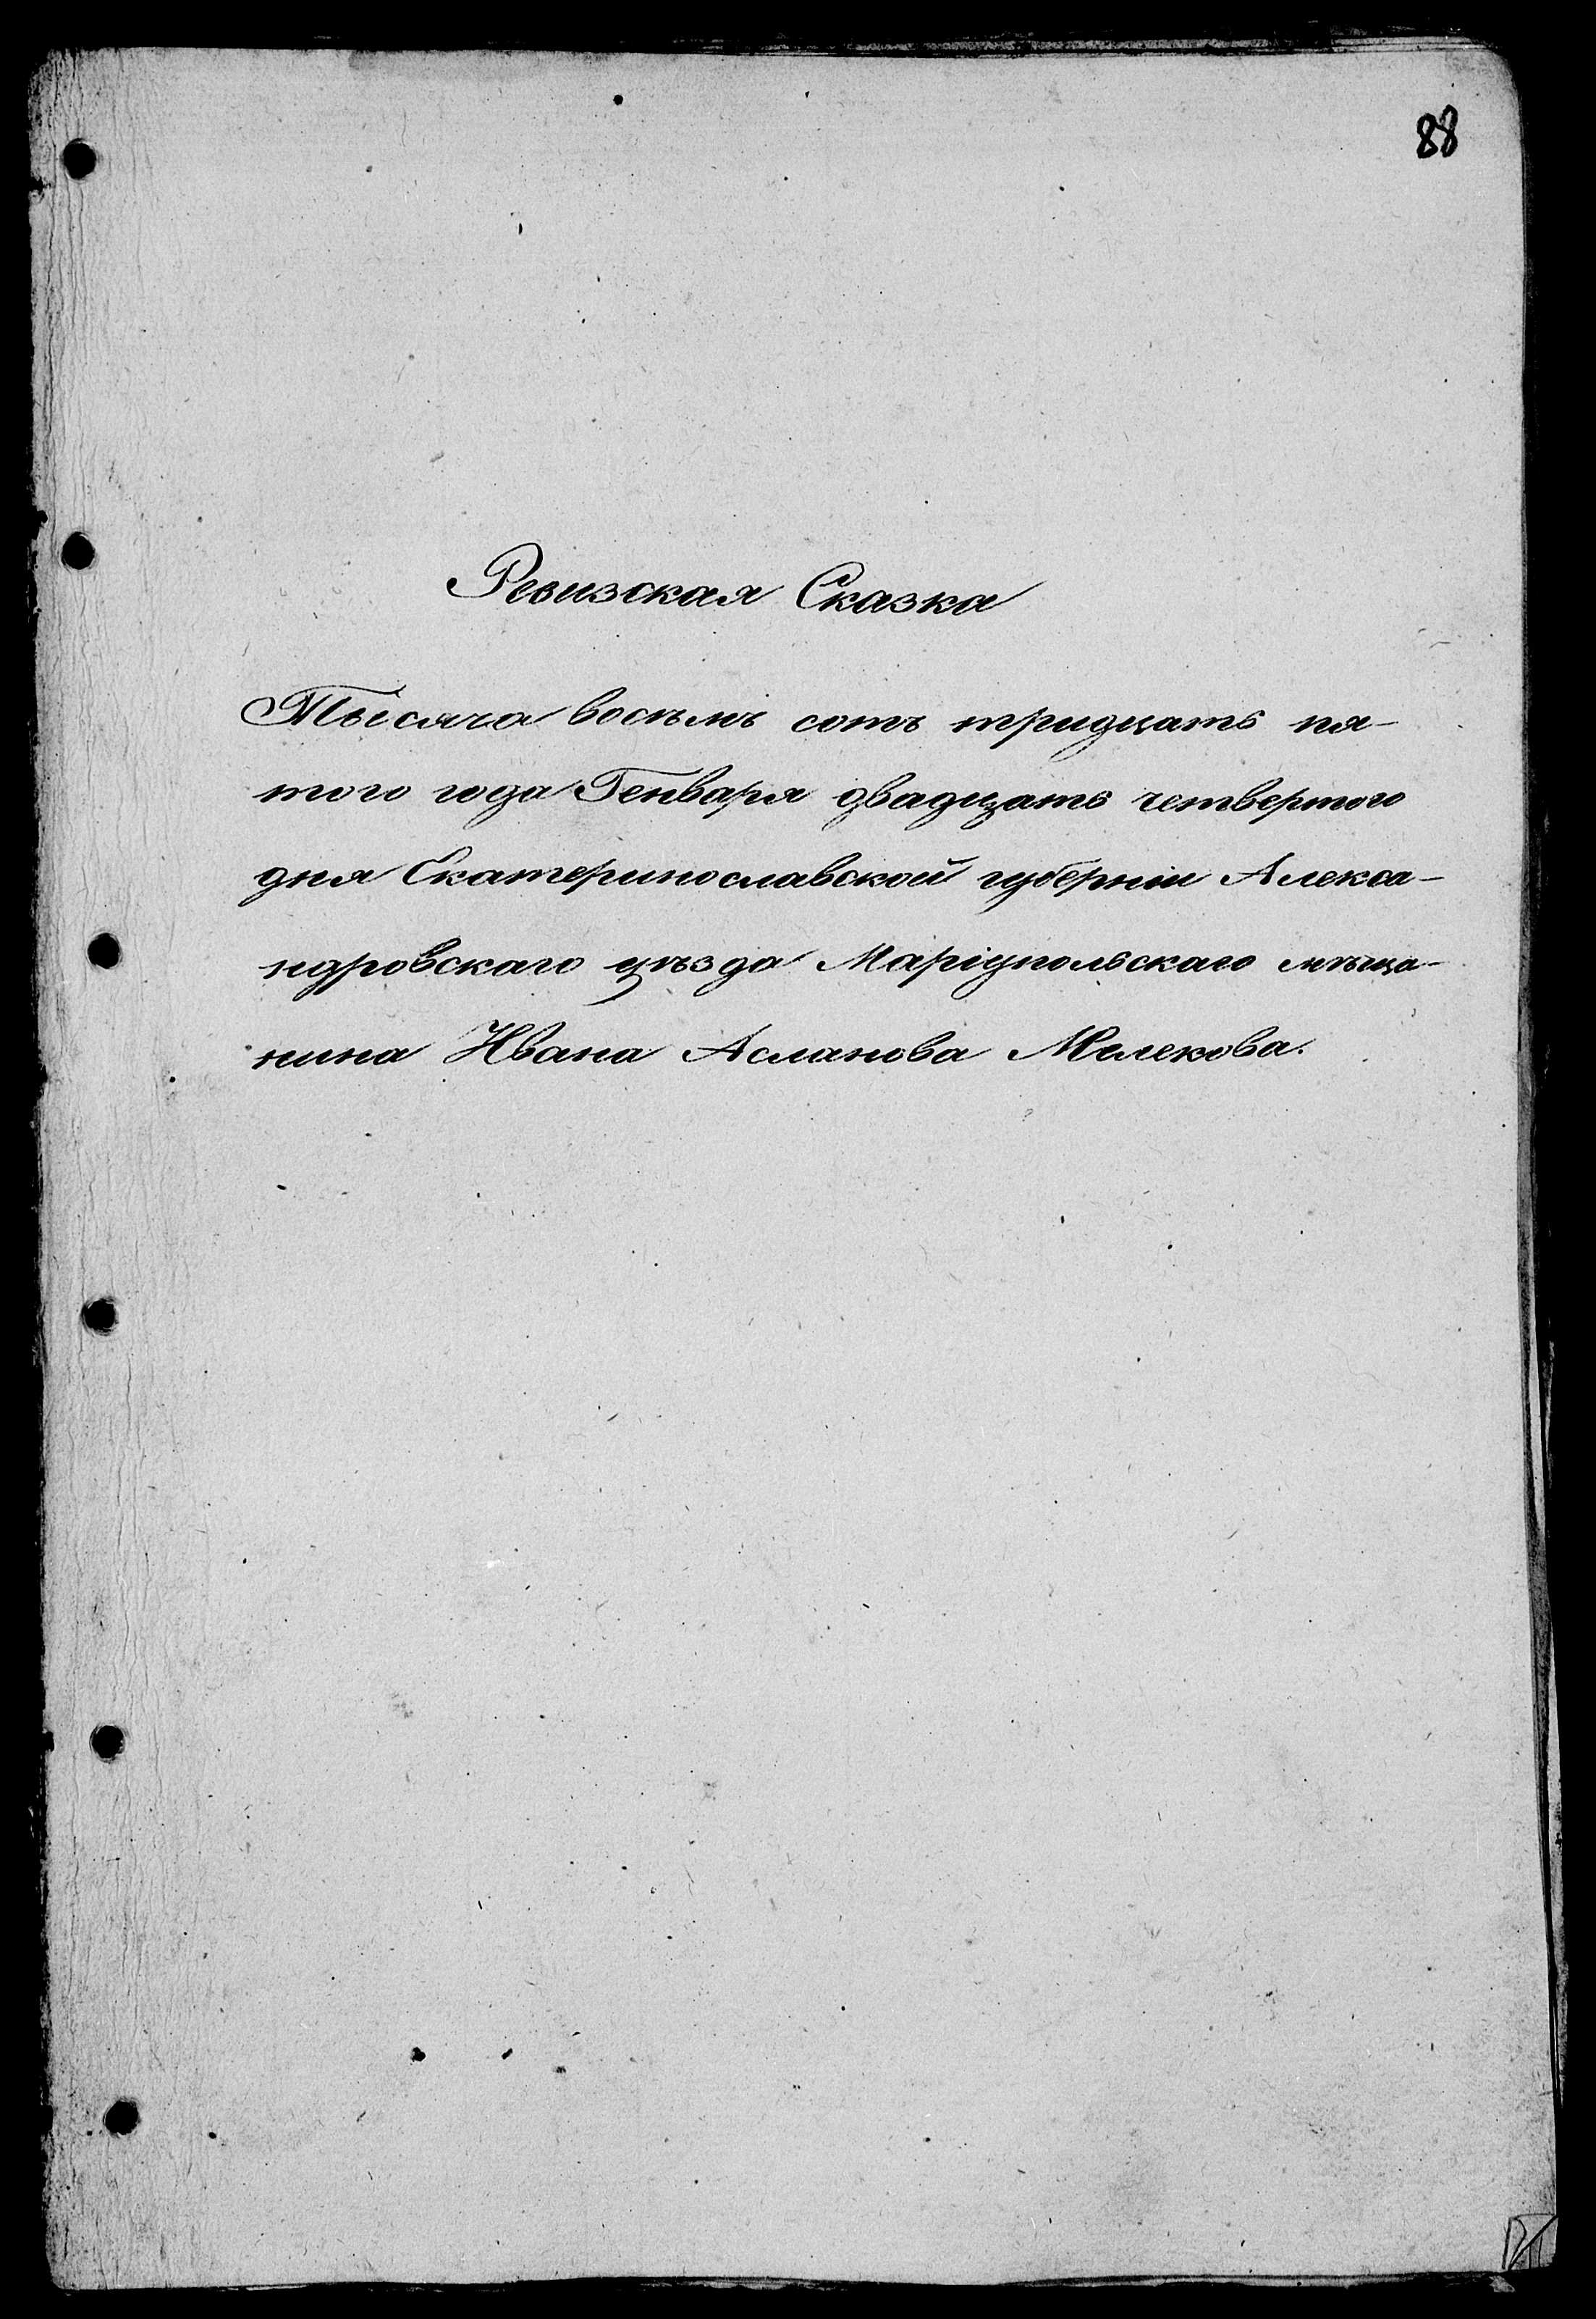 88
Ревизская Сказка
Тысяча восемь сотъ тридцать пя-
того года Генваря двадцать четвертого
дня Екатеринославской губерніи Алекса-
ндровскаго уѣзда Маріупольскаго мѣща-
нина Ивана Асланова Мелекова.